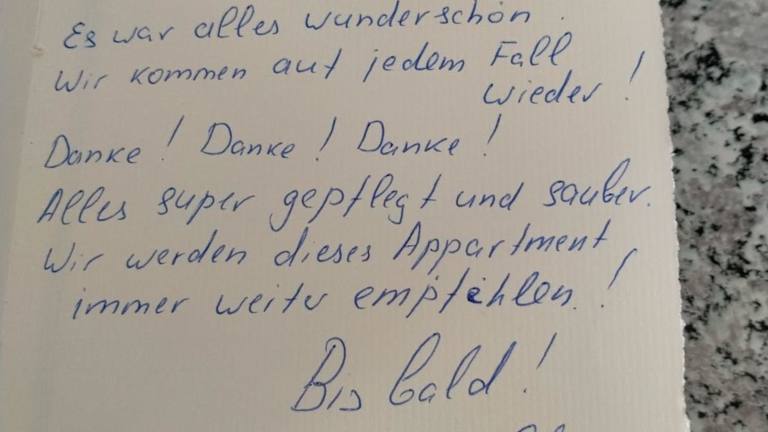 Es war alles wunderschön.
Wir kommen auf jedem Fall
wieder!
Danke! Danke! Danke!
Alles super gepflegt und sauber.
Wir werden dieses Appartment
immer weiter empfehlen!
Bis bald!